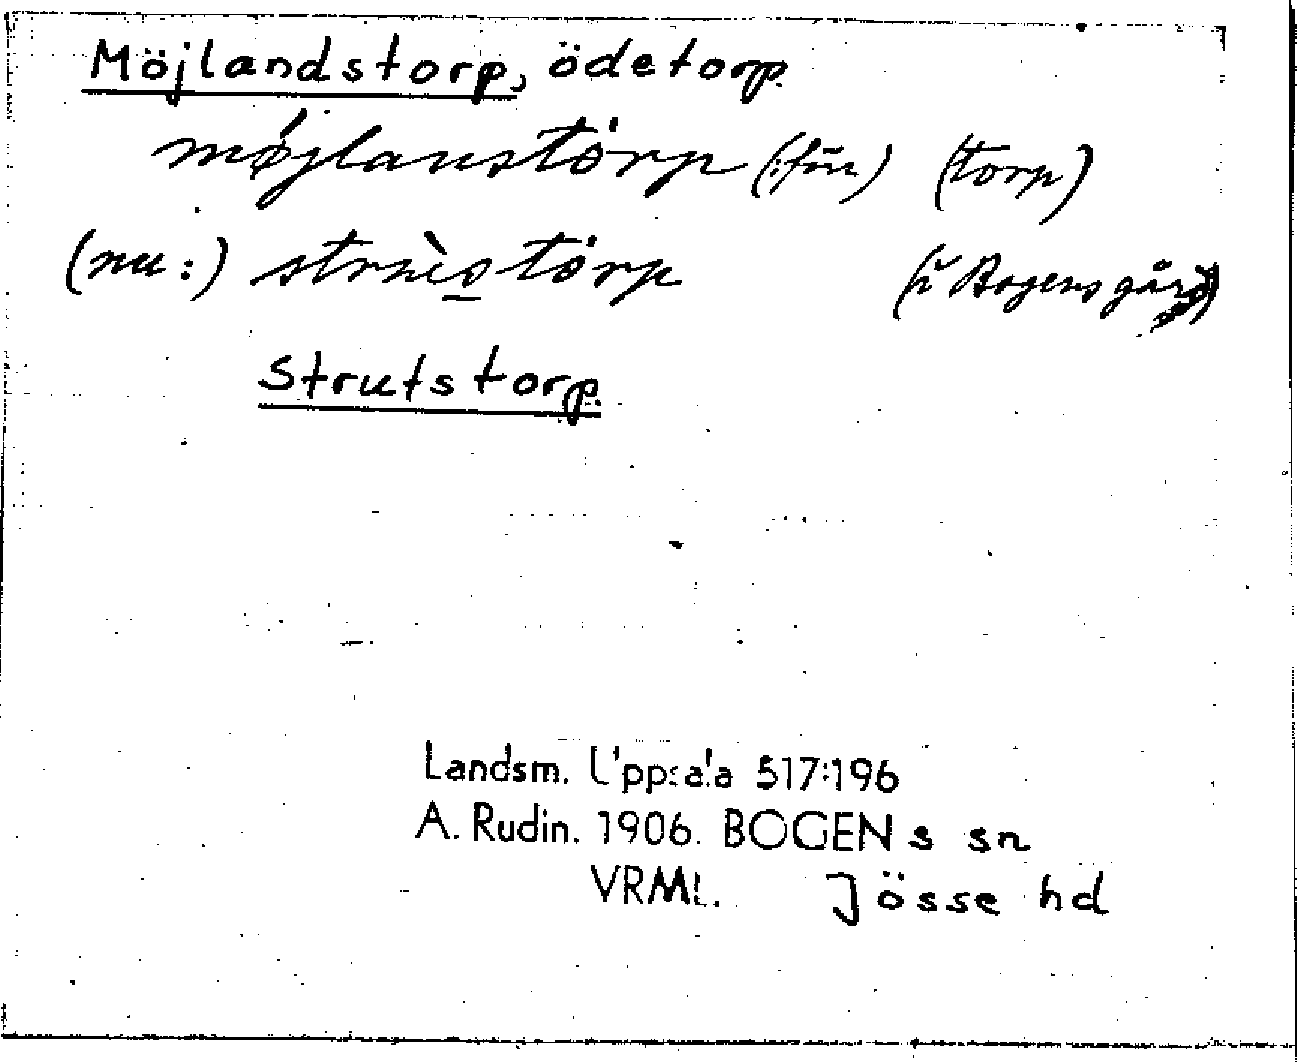 Möjlandstorp, ödetorp.
möjlanstörp (förr) (torp)
(nu:) törp (u Bogens gård)
Strutstorp.
Landsm. Uppsala 517:196
A. Rudin. 1906. BOGENs sn
VRML. Jösse hd